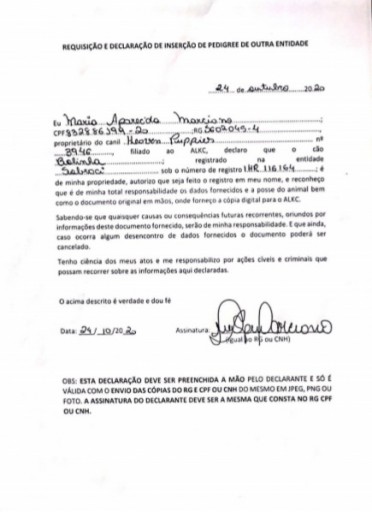 REQUISIÇÃO E DECLARAÇÃO DE INSERÇÃO DE PEDIGREE DE OUTRA ENTIDADE
24 de outubro 2020
Eu Maria Aparecida Marciano
CPF 832886399-20 RG 5602045-4
proprietário do canil Heaven Puppies nº
3946, filiado ao ALKC, declaro que o cão
Bolinha, registrado na entidade
Sobraci sob o número de registro 116164; é
de minha propriedade, autorizo que seja feito o registro em meu nome, e reconheço
que é de minha total responsabilidade os dados fornecidos e a posse do animal bem
como o documento original em mãos, onde forneço a cópia digital para o ALKC.
Sabendo-se que quaisquer causas ou consequências futuras recorrentes, oriundos por
informações deste documento fornecido, serão de minha responsabilidade. E que ainda,
caso ocorra algum desencontro de dados fornecidos o documento poderá ser
cancelado.
Tenho ciência dos meus atos e me responsabilizo por ações cíveis e criminais que
possam recorrer sobre as informações aqui declaradas.
O acima descrito é verdade e dou fé
Data: 24/10/2020 Assinatura:
(igual ao RG ou CNH)
OBS: ESTA DECLARAÇÃO DEVE SER PREENCHIDA A MÃO PELO DECLARANTE E SÓ É
VÁLIDA COM O ENVIO DAS CÓPIAS DO RG E CPF OU CNH DO MESMO EM JPEG, PNG OU
FOTO. A ASSINATURA DO DECLARANTE DEVE SER A MESMA QUE CONSTA NO RG CPF
OU CNH.